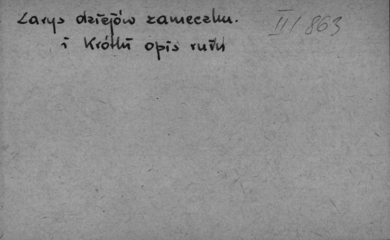 Zarys dziejów zameczku. III/863
i Krótki opis ruin